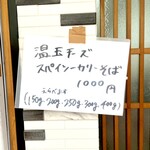 温玉チーズ
スペインカリーそば
1000円
えらべます
(150g・200g・250g・300g・400g)